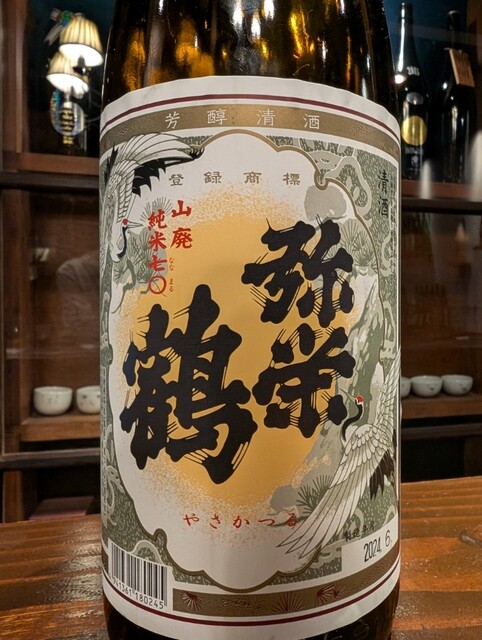 芳醇清酒
登録商標
清酒
山廃
純米七〇
なな まる
弥栄
鶴
やさかつる
2024.6.